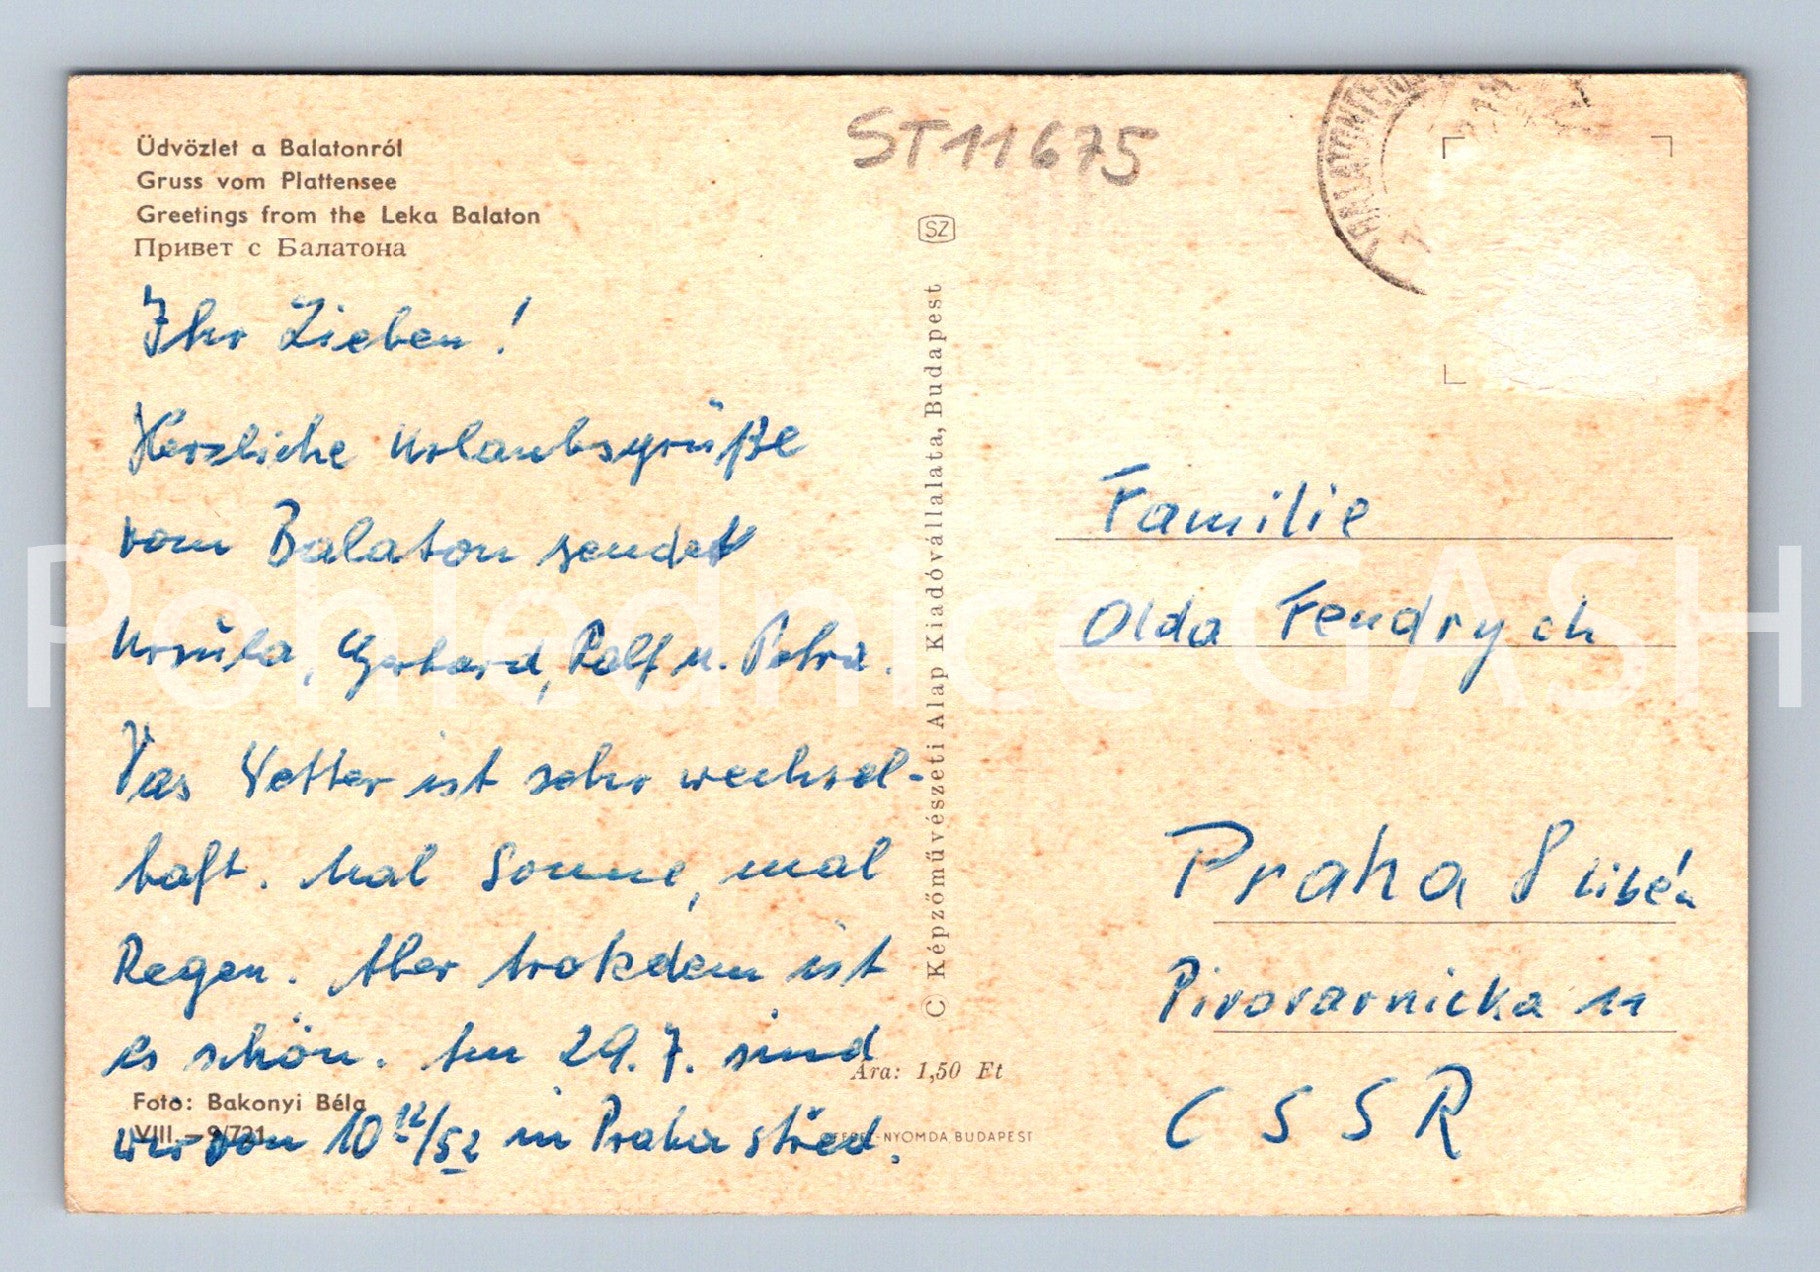 Üdvözlet a Balatonról
Gruss vom Plattensee
Greetings from the Leka Balaton
Привет с Балатона
ST11675
SZ
Ihr Lieben!
Herzliche Urlaubsgrüße
vom Balaton sendet
Ursula, Gerhard, Rolf u. Petra.
Das Wetter ist sehr wechsel-
haft. Mal Sonne, mal
Regen. Aber trotzdem ist
es schön. Am 29.7. sind
wir von 10 12/52 in Praha střed.
Foto: Bakonyi Béla
VIII.—9/721
© Képzőművészeti Alap Kiadóvállalata, Budapest
Ára: 1,50 Ft
-NYOMDA, BUDAPEST
Familie
Olda Fendrych
Praha 8 Libén
Pivovarnicka 11
CSSR
Pohlednice GASH